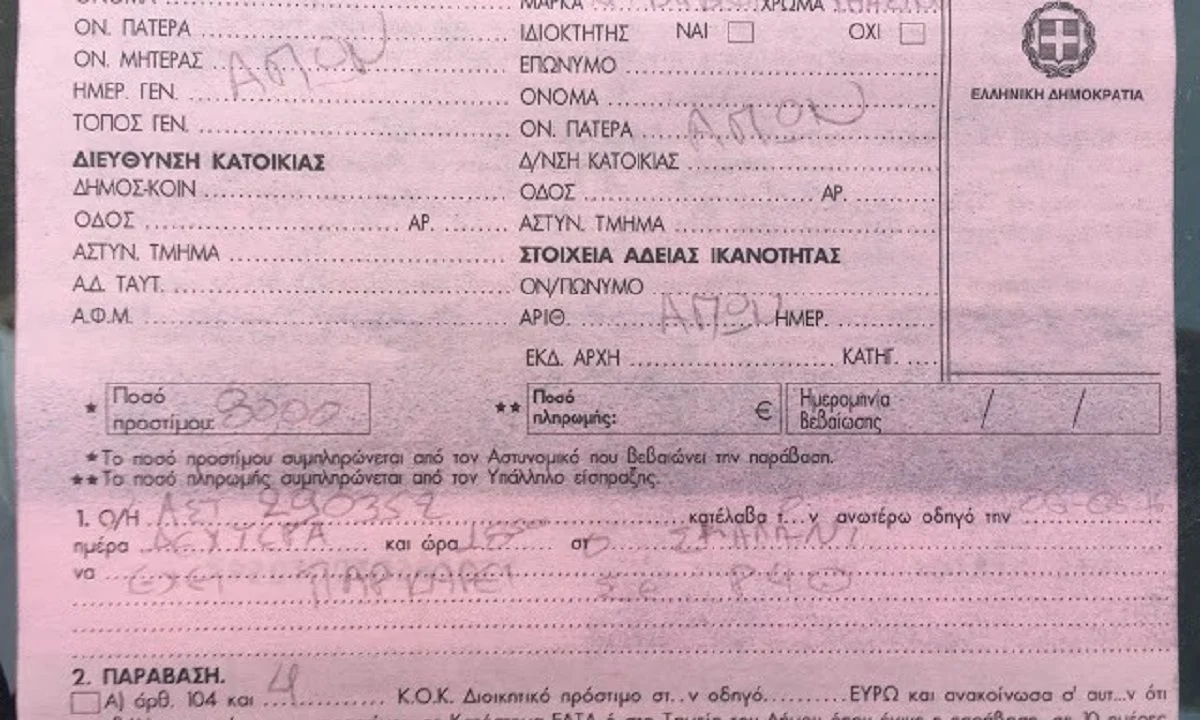 ΟΝΟΜΑ
ΟΝ. ΠΑΤΕΡΑ
ΟΝ. ΜΗΤΕΡΑΣ ΑΠΩΝ
ΗΜΕΡ. ΓΕΝ.
ΤΟΠΟΣ ΓΕΝ.
ΔΙΕΥΘΥΝΣΗ ΚΑΤΟΙΚΙΑΣ
ΔΗΜΟΣ-ΚΟΙΝ
ΟΔΟΣ ΑΡ.
ΑΣΤΥΝ. ΤΜΗΜΑ
ΑΔ ΤΑΥΤ.
Α.Φ.Μ.
ΜΑΡΚΑ ΧΡΩΜΑ
ΙΔΙΟΚΤΗΤΗΣ ΝΑΙ ΟΧΙ
ΕΠΩΝΥΜΟ
ΟΝΟΜΑ
ΟΝ. ΠΑΤΕΡΑ ΑΠΩΝ
Δ/ΝΣΗ ΚΑΤΟΙΚΙΑΣ
ΟΔΟΣ ΑΡ.
ΑΣΤΥΝ. ΤΜΗΜΑ
ΣΤΟΙΧΕΙΑ ΑΔΕΙΑΣ ΙΚΑΝΟΤΗΤΑΣ
ΟΝ/ΠΩΝΥΜΟ
ΑΡΙΘ. ΑΠΩΝ ΗΜΕΡ.
ΕΚΔ. ΑΡΧΗ ΚΑΤΗΓ.
ΕΛΛΗΝΙΚΗ ΔΗΜΟΚΡΑΤΙΑ
* Ποσό
προστίμου:
** Ποσό
πληρωμής: €
Ημερομηνία
Βεβαίωσης / /
*Το ποσό προστίμου συμπληρώνεται από τον Αστυνομικό που βεβαιώνει την παράβαση.
**Το ποσό πληρωμής συμπληρώνεται από τον Υπάλληλο είσπραξης.
1. Ο/Η ΑΣΤ 290352 κατέλαβα τ...ν ανωτέρω οδηγό την
ημέρα ΔΕΥΤΕΡΑ και ώρα στ
να ΕΧΕΙ ΠΑΡΚΑΡΕΙ ΣΕ Ρ40
2. ΠΑΡΑΒΑΣΗ.
Α) άρθ. 104 και 4 Κ.Ο.Κ. Διοικητικό πρόστιμο στ..ν οδηγό ΕΥΡΩ και ανακοίνωσα σ' αυτ...ν ότι